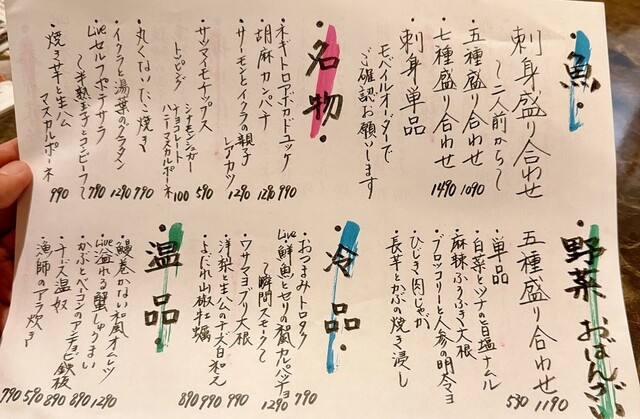 ・魚・
刺身盛り合わせ
〜二人前から〜
五種盛り合わせ 1090
七種盛り合わせ 1490
・刺身単品
モバイルオーダーで
ご確認お願いします
・名物・
・ネギトロアボカドユッケ 990
・胡麻カンパチ 1290
・サーモンとイクラの親子レアカツ 1290
・サツマイモチップス 590
トッピング
シナモンシュガー
チョコレート
ハニーマスカルポーネ 100
・丸くないたこ焼き 790
・イクラと湯葉のグラタン 1290
・Liveセルフポテサラ
〜半熟玉子とコンビーフ〜 790
・焼き芋と生ハム
マスカルポーネ 990
・野菜おばんざい
五種盛り合わせ 1190
・単品 530
・白菜とツナの旨塩ナムル
・麻辣ふろふき大根
・ブロッコリーと人参の明太マヨ
・ひじき肉じゃが
・長芋とかぶの焼き浸し
・冷品・
・おつまみトロタク 790
・Live鮮魚とセリの和風カルパッチョ
〜瞬間スモーク〜 1290
・ワサマヨブリ大根 990
・洋梨と生ハムの干大白和え 990
・よだれ山椒牡蠣 890
・温品・
・鰻巻かない和風オムレツ 1290
・Live溢れる蟹しゅうまい 890
・かぶとベーコンのアンチョビ鉄板 890
・チーズ温奴 590
・漁師のアラ炊き 790